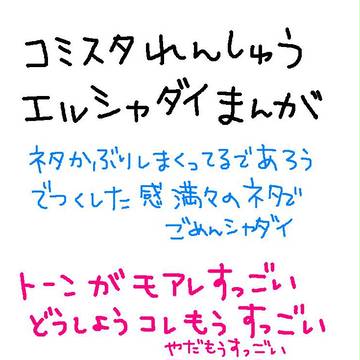 コミスタれんしゅう
エルシャダイまんが
ネタかぶりしまくってるであろう
でつくした感満々のネタで
ごめんシャダイ
トーンがモアレすっごい
どうしようコレもうすっごい
やだもうすっごい